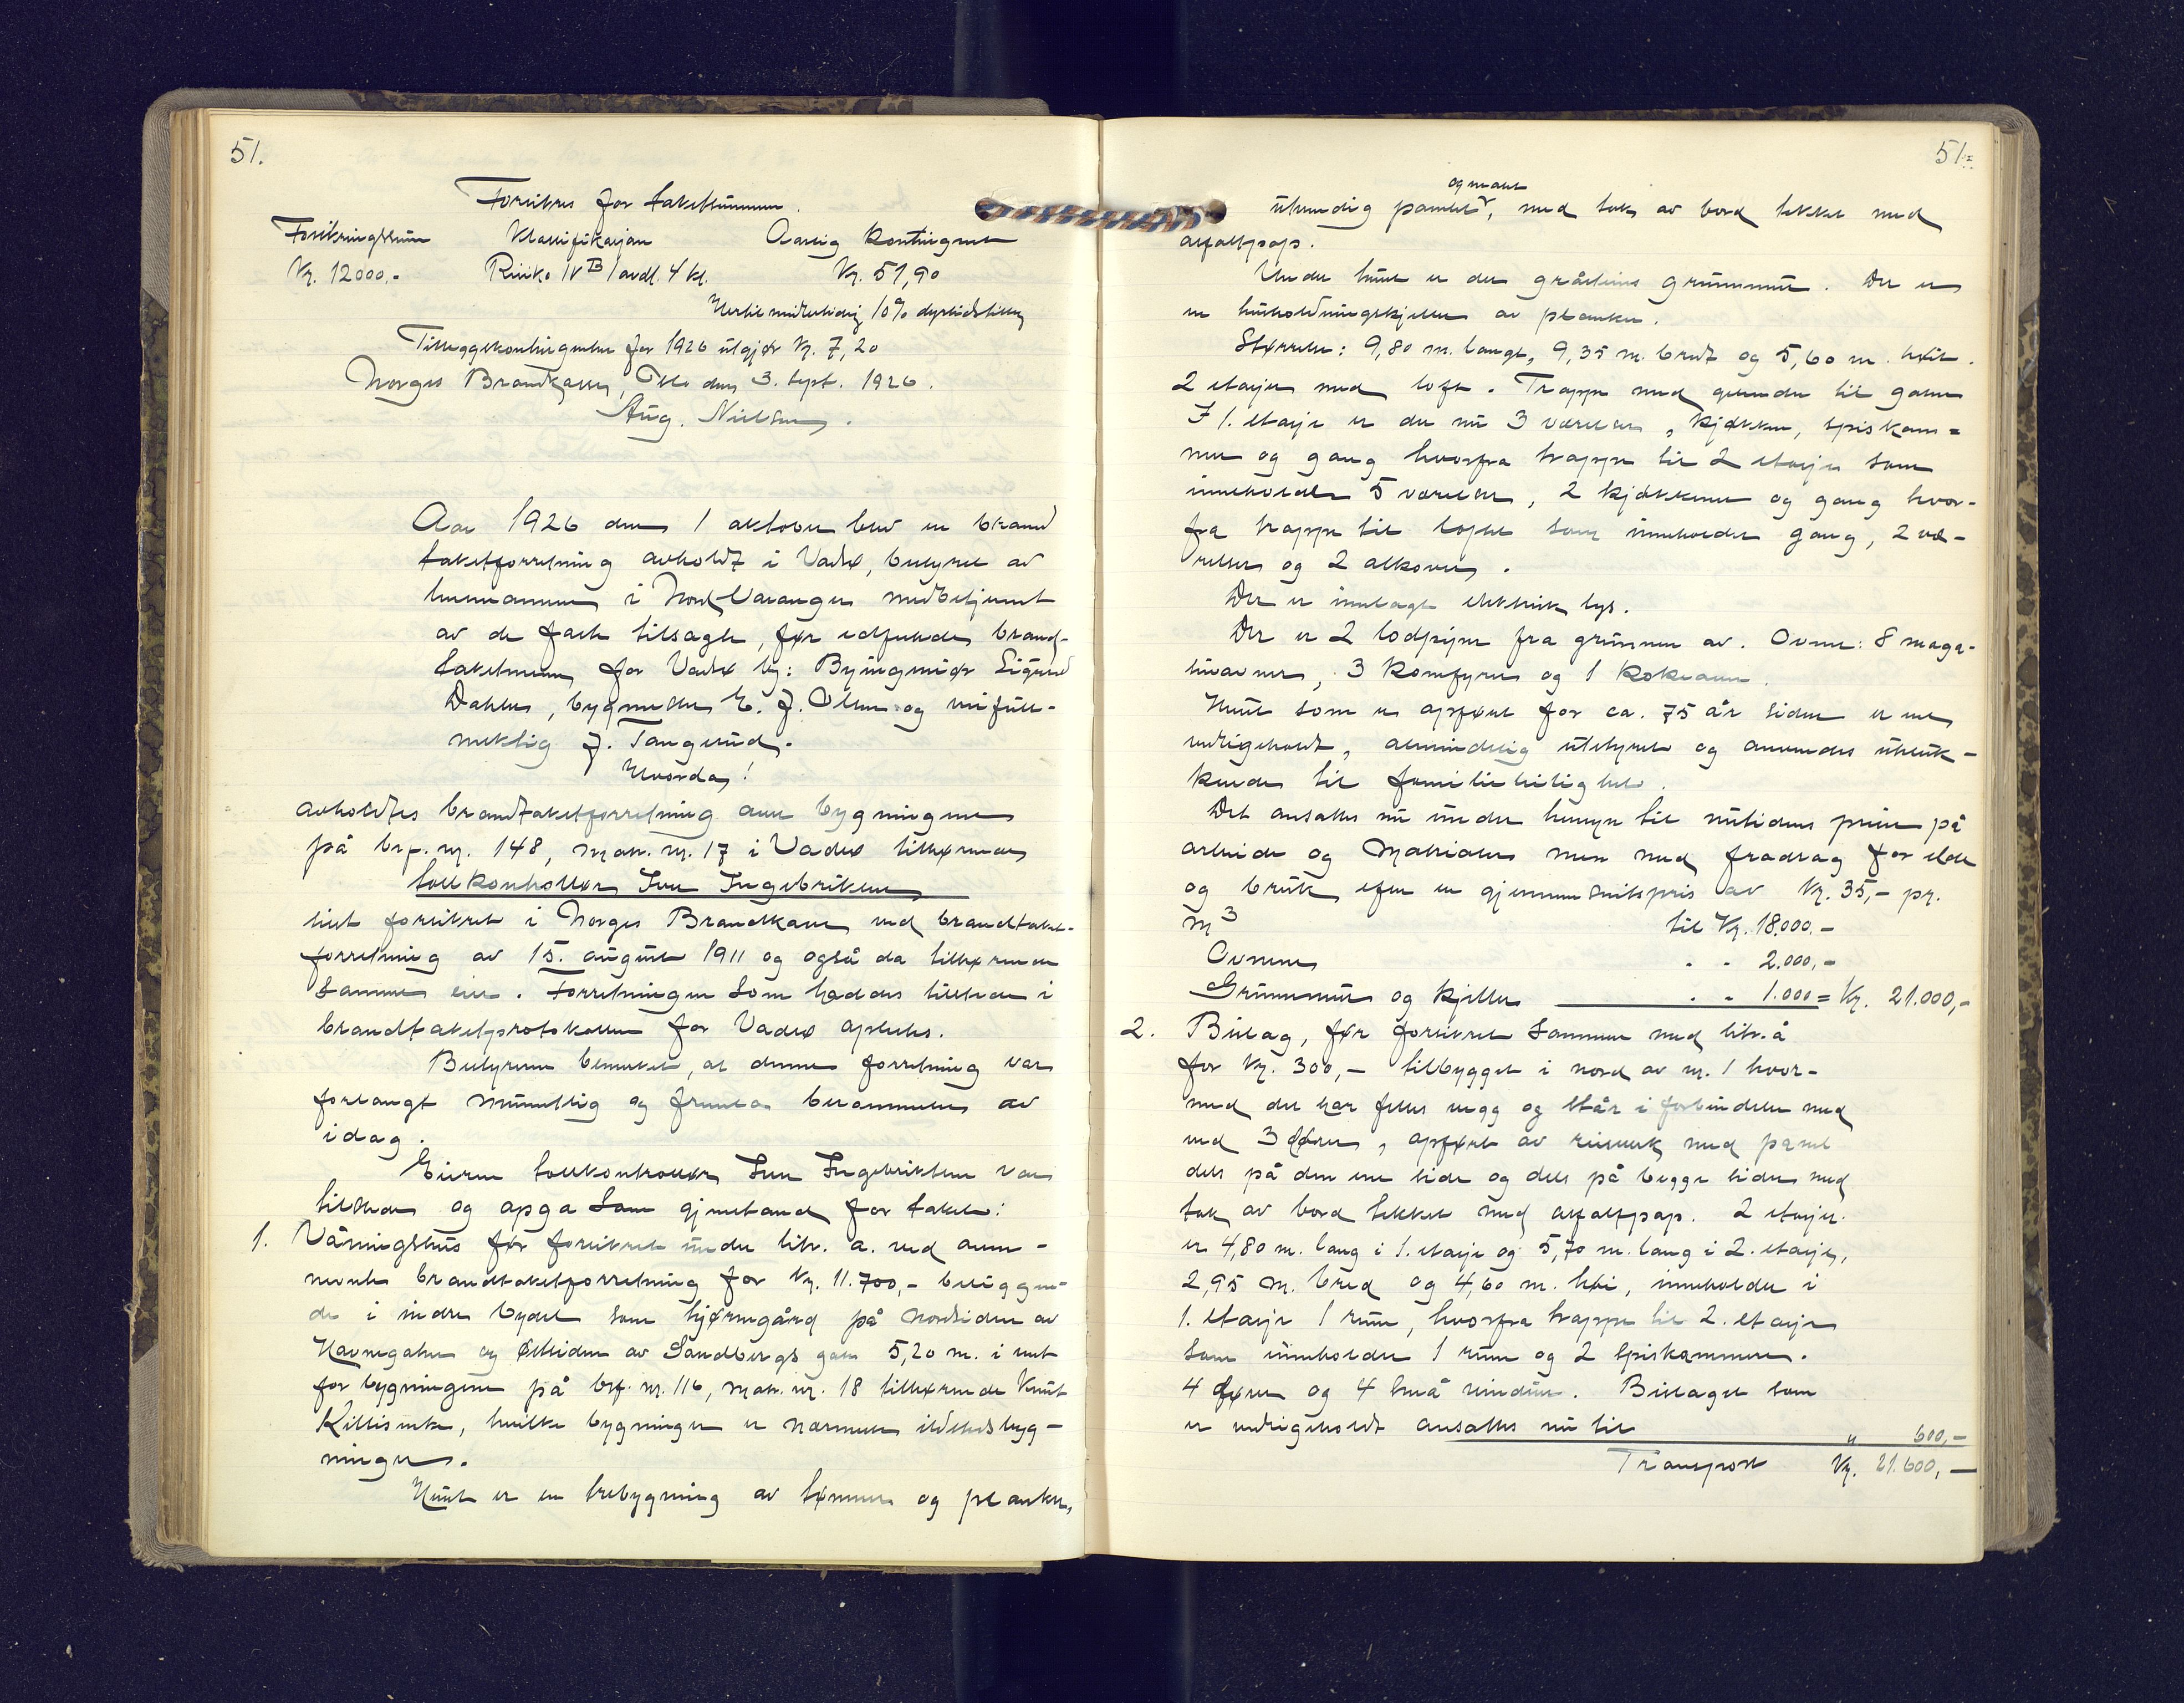 51.
Forsikres for takstsummen.
Forsikringssum Klassifikasjon Aarlig Kontingent
Kr. 12000.- Risiko IV B 1 avdl. 4 kl. Kr. 51,90
Hertil midlertidig 10% dyrtidstillæg
Tilleggskontingenten for 1926 utgjør Kr. 7,20
Norges Brandkasse, Oslo den 3. sept. 1926.
Aug. Nielsen.
Aar 1926 den 1 oktober blev en brand
takstforretning avholdt i Vadsø, bestyret av
lensmannen i Nord Varanger medbetjent
av de fast tilsagte, før edfestede brand-
takstmenn for Vadsø by: Byingeniør Sigurd
Dahler, bygmester E. J. Olsen og innfull-
mektig J. Tangerud.
Hvorda!
avholdtes brandtakstforretning over bygningene
på brf. nr. 148, matr. nr. 17 i Vadsø tilhørende
tollkontrollør Iver Ingebriktsen
sist forsikret i Norges Brandkasse ved brandtakst-
forretning av 15. august 1911 og også da tilhørende
samme eier. Forretningen som haddes tilstede i
brandtakstprotokollen for Vadsø oplestes.
Bestyreren bemerket, at denne forretning var
forlangt mundtlig og berammelse av
idag.
Eieren tollkontrollør Iver Ingebriktsen var
tilstede og opga som gjenstand for takst:
1. Våningshus før forsikret under litr. a. ved oven-
nevnte brandtakstforretning for Kr. 11.700,- beliggen-
de i indre bydel som hjørnegård på nordsiden av
Havnegaten og østsiden av Sandbergs gate 5,20 m. i vest
for bygningene på brf. nr. 116, matr. nr. 18 tilhørende Knut
Killismek, hvilke bygninger er nærmeste ildstedsbyg-
ninger.
Huset er en trebygning av tømmer og planker,
51=
og malet
utvendig panelt, med tak av bord tekket med
asfaltpap.
Under huset er der gråstens grunnmur. Der er
en husholdningskjeller av planker.
Størrelse: 9,80 m. langt, 9,35 m. bredt og 5,60 m. høit.
2 etasjer med loft. Trapp med gelender til gaten
I 1. etasje er der nu 3 værelser, kjøkken, spiskam=
mer og gang hvorfra trappe til 2 etasje som
inneholder 5 værelser, 2 kjøkkener og gang hvor-
fra trappe til loftet som inneholder gang, 2 væ-
relser og 2 alkover.
Der er innlagt elektrisk lys.
Der er 2 lodpiper fra grunnen av. Ovner: 8 maga-
sinovner, 3 komfyrer og 1 kokeovn.
Huset som er opført for ca. 75 år siden er vel
vedligeholdt, almindelig utstyret og anvendes uteluk-
kende til familieleilighet.
Det ansattes nu under hensyn til nutidens priser på
arbeide og materialer men med fradrag for elde
og bruk efter en gjennemsnitspris av Kr. 35,- pr.
m3 til Kr. 18.000.-
Ovnene " " 2.000,-
Grunnmur og kjeller " " 1.000 = Kr. 21.000,-
2. Bislag, før forsikret sammen med litr. å
for Kr. 300,- tilbygget i nord av nr. 1 hvor-
med det har felles vegg og står i forbindelse med
ved 3 døre, opført av reisverk med panel
dels på den ene side og dels på begge sider med
tak av bord tekket med asfaltpap. 2 etasjer.
er 4,80 m. lang i 1. etasje og 5,70 m. lang i 2. etasje,
2,95 m. bred og 4,60 m. høi, inneholder i
1. etasje 1 rum, hvorfra trappe til 2. etasje
som inneholder 1 rum og 2 spiskammere.
4 døre og 4 små vinduer. Bislaget som
er vedligeholdt ansattes nu til " 600,-
Transport Kr. 21.600,-